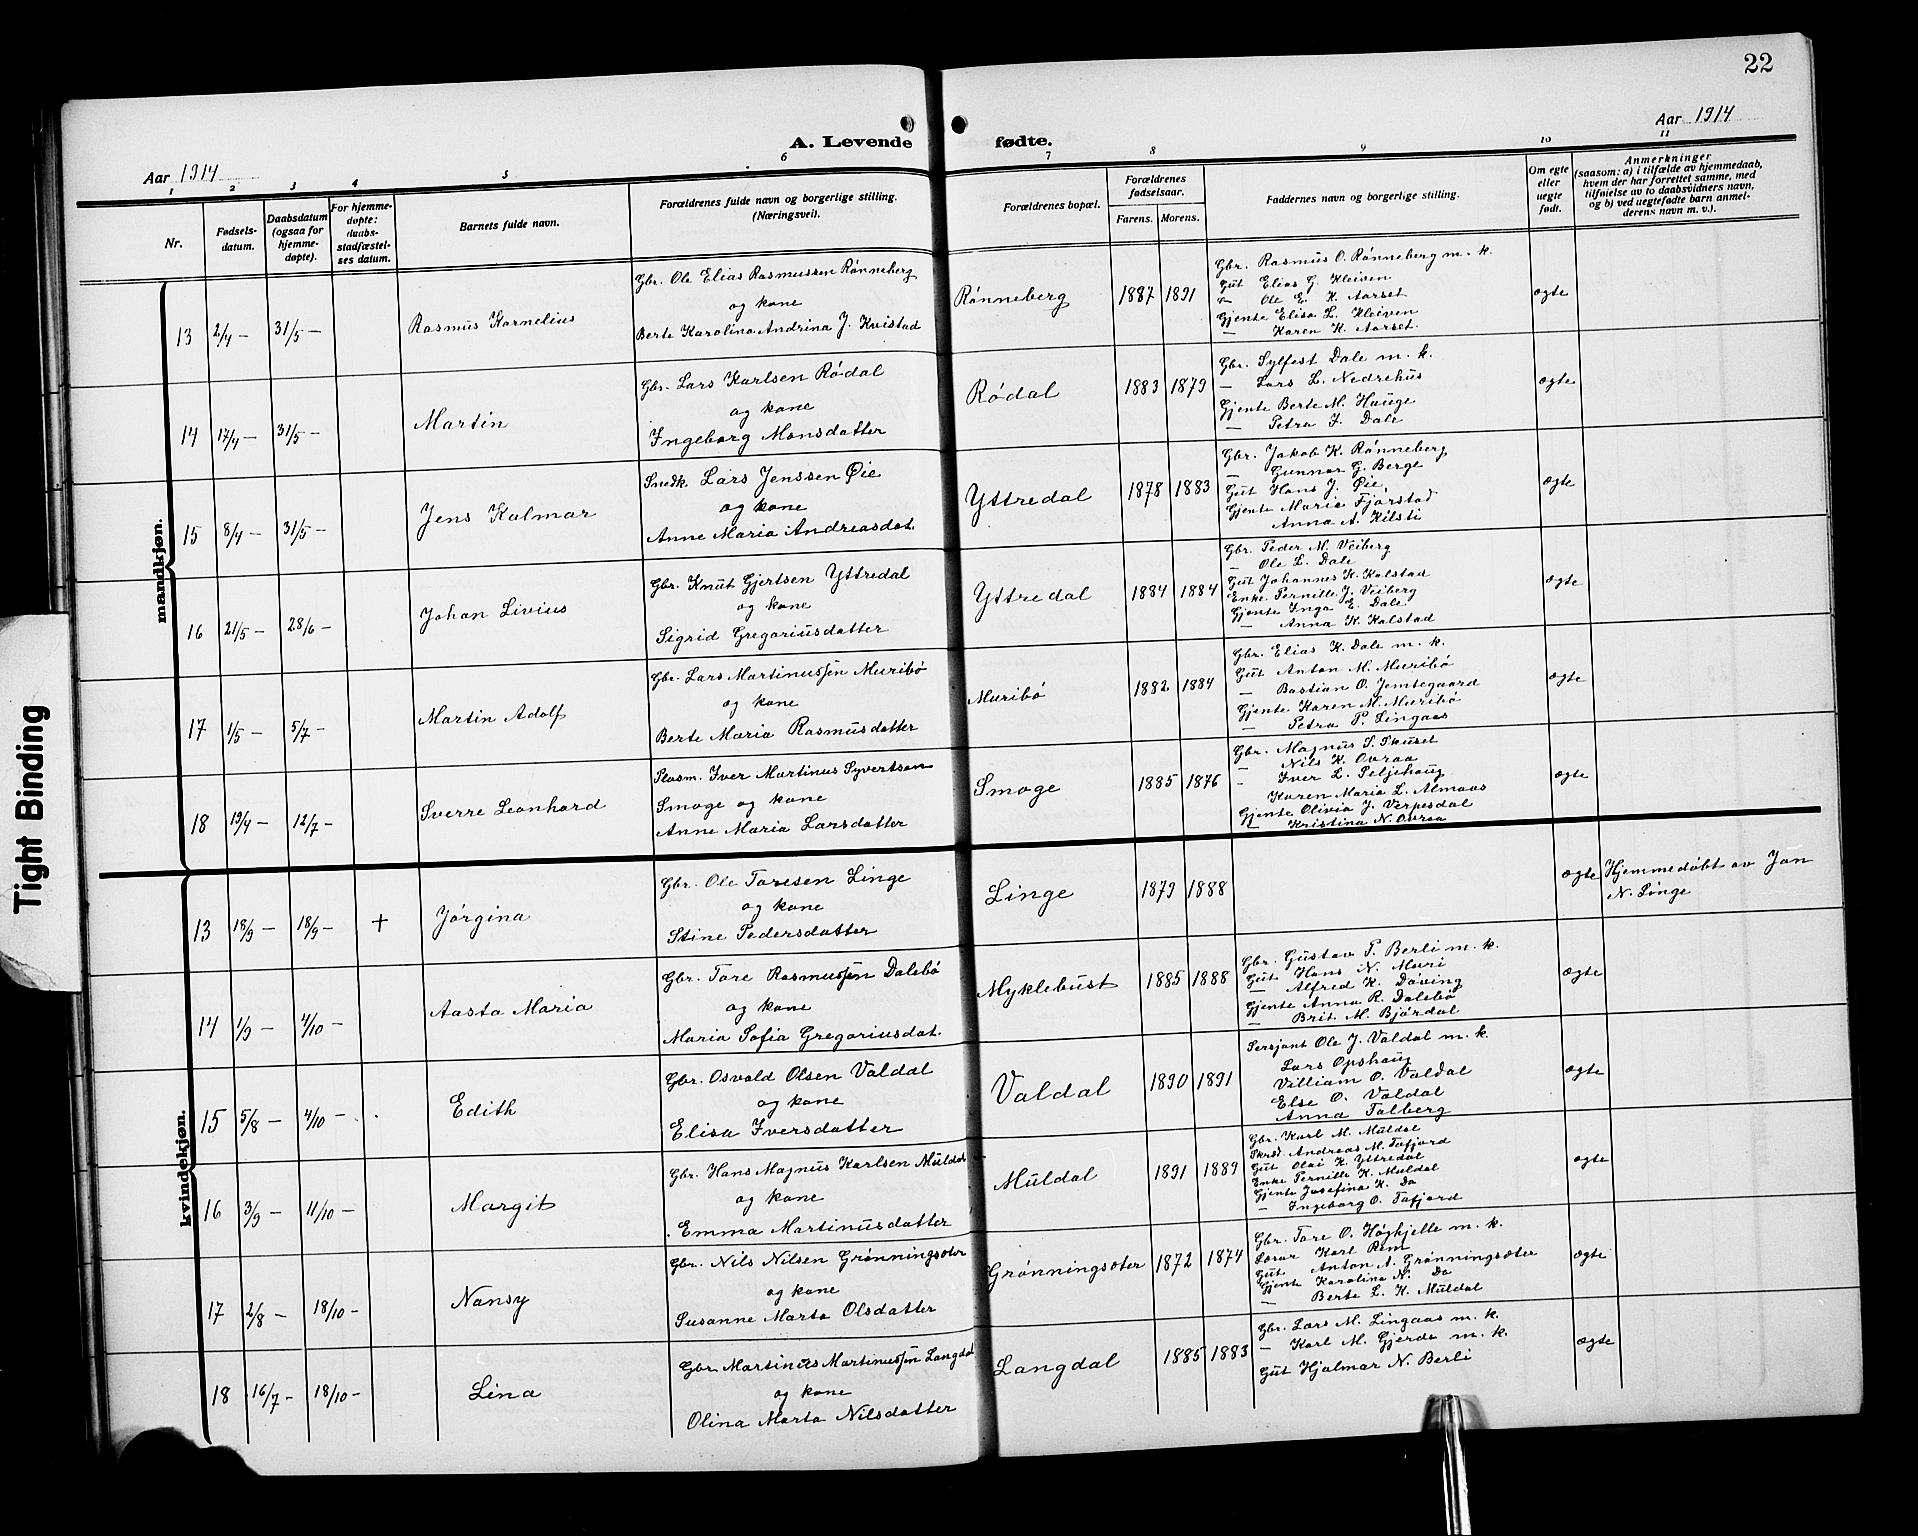 22
A. Levende fødte.
Aar 1914
Aar 1914
1 2 3 4 5 6 7 8 9 10 11
Nr.
Fødsels-
datum.
Daabsdatum
(ogsaa for
hjemme-
døpte).
For hjemme-
døpte:
daabs-
stadfæstel-
ses datum.
Barnets fulde navn.
Forældrenes fulde navn og borgerlige stilling.
(Næringsvei).
Forældrenes bopæl.
Forældrenes
fødselsaar.
Farens. Morens.
Faddernes navn og borgerlige stilling.
Om egte
eller
uegte
født.
Anmerkninger
(saasom: a) i tilfælde av hjemmedaab,
hvem der har forrettet samme, med
tilføielse av to daabsvidners navn,
og b) ved uegtefødte barn anmel-
derens navn m. v.).
mandkjøn.
13 2/4 – 31/5 – Rasmus Kornelius
Gbr. Ole Elias Rasmussen Rønneberg
og kone
Berte Karolina Andrina J. Kvistad
Rønneberg 1887 1891
Gbr. Rasmus O. Rønneberg m. k.
Gut Elias G. Kleiven
– Ole E. K. Aarset
Gjente Elisa L. Kleiven
– Karen K. Aarset.
ægte
14 17/4 – 31/5 – Martin
Gbr. Lars Karlsen Rødal
og kone
Ingeborg Monsdatter
Rødal 1883 1879
Gbr. Sylfest Dale m. k.
– Lars L. Nedrehus
Gjente Berte M. Hauge
– Petra J. Dale
ægte
15 8/4 – 31/5 – Jens Kalmar
Snedk. Lars Jenssen Øie
og kone
Anne Maria Andreasdat.
Yttredal 1878 1883
Gbr. Jakob K. Rønneberg
– Gunnar G. Berge
Gut Hans J. Øie
Gjente Maria Fjørstad
Anna A. Kilsti
ægte
16 21/5 – 28/6 – Johan Livius
Gbr. Knut Gjertsen Yttredal
og kone
Sigrid Gregoriusdatter
Yttredal 1884 1884
Gbr. Peder M. Veiberg
– Ole L. Dale
Gut Johannes K. Kalstad
Enke Pernille J. Veiberg
Gjente Inga E. Dale
– Anna K. Kalstad
ægte
17 1/5 – 5/7 – Martin Adolf
Gbr. Lars Martinussen Muribø
og kone
Berte Maria Rasmusdatter
Muribø 1882 1884
Gbr. Elias K. Dale m. k.
Gut Anton M. Muribø
– Bastian O. Jemtegaard
Gjente Karen M. Muribø
– Petra P. Lingaas
ægte
18 19/4 – 12/7 – Sverre Leonhard
Plasm. Iver Martinus Syvertsen
Smoge og kone
Anne Maria Larsdatter
Smoge 1885 1876
Gbr. Magnus S. Skuset
– Nils K. Ovraa
– Iver L. Seljehaug
Karen Maria L. Almaas
Gjente Olivia J. Verpesdal
– Kristina N. Ovraa
ægte
kvindekjøn.
13 18/9 – 18/9 – + Jørgina
Gbr. Ole Toresen Linge
og kone
Stine Pedersdatter
Linge 1879 1888
ægte
Hjemmedøbt av Jon
N. Linge
14 1/9 – 4/10 – Aasta Maria
Gbr. Tore Rasmussen Dalebø
og kone
Maria Sofia Gregoriusdat.
Myklebust 1885 1888
Gbr. Gustav P. Berli m. k.
Gut Hans N. Muri
– Alfred K. Døving
Gjente Anna R. Dalebø
– Brit M. Bjørdal
ægte
15 5/8 – 4/10 – Edith
Gbr. Osvald Olsen Valdal
og kone
Elisa Iversdatter
Valdal 1890 1891
Sersjant Ole J. Valdal m. k.
Lars Opshaug
Villiam O. Valdal
Else O. Valdal
Anna Talberg
ægte
16 3/9 – 11/10 – Margit
Gbr. Hans Magnus Karlsen Muldal
og kone
Emma Martinusdatter
Muldal 1891 1889
Gbr. Karl M. Muldal
Skræd. Andreas M. Tafjord
Gut Olai K. Yttredal
Enke Pernille K. Muldal
Gjente Josefina K. Do
– Ingeborg O. Tafjord
ægte
17 2/8 – 18/10 – Nansy
Gbr. Nils Nilsen Grønningsæter
og kone
Susanne Marta Olsdatter
Grønningsæter 1872 1874
Gbr. Tore O. Høgkjelle m. k.
Lærar Karl Rem
Gut Anton A. Grønningsæter
Gjente Karolina N. Do
– Berte L. K. Muldal
ægte
18 16/7 – 18/10 – Lina
Gbr Martinus Martinussen Langdal
og kone
Olina Marta Nilsdatter
Langdal 1885 1883
Gbr. Lars M. Lingaas m. k.
– Karl M. Gjerde m. k.
Gut Hjalmar N. Berli
ægte
Tight Binding